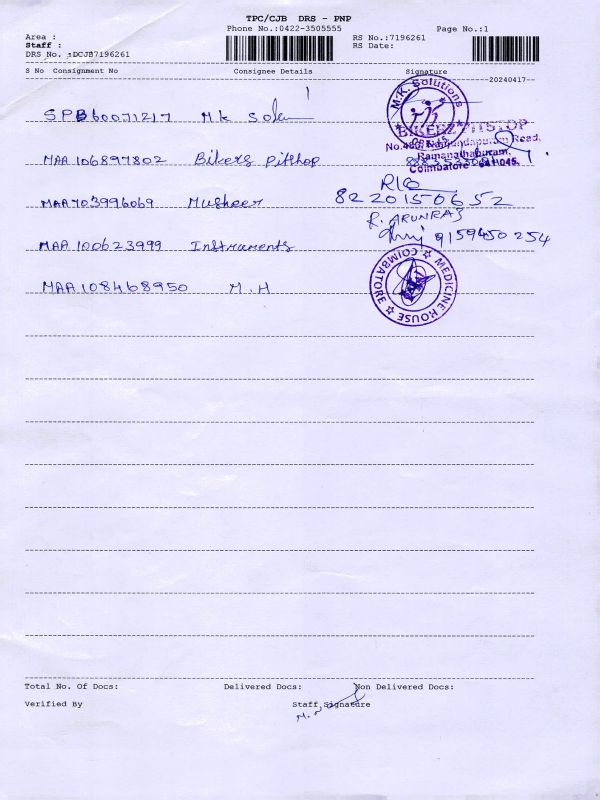 TPC/CJB DRS - PNP
Phone No.:0422-3505555
Page No.:1
Area :
RS No.:7196261
Staff :
RS Date:
DRS No. :DCJB7196261
S No Consignment No Consignee Details Signature
20240417
SPB60071217 M.K
M.K. Solutions
CBE-45
BIKERZ PITSTOP
No.480, Nanjundapuram Road,
Ramanathapuram,
Coimbatore - 641 045.
MAA 106897802 Bikers pitshop
MAA703996069 Musheer 8220150652
R. ARUNRAJ
MAA 100623999 Instruments 9159450254
MAA108468950 M.H
MEDICINE HOUSE
COIMBATORE
Total No. Of Docs: Delivered Docs: Non Delivered Docs:
Verified By Staff Signature